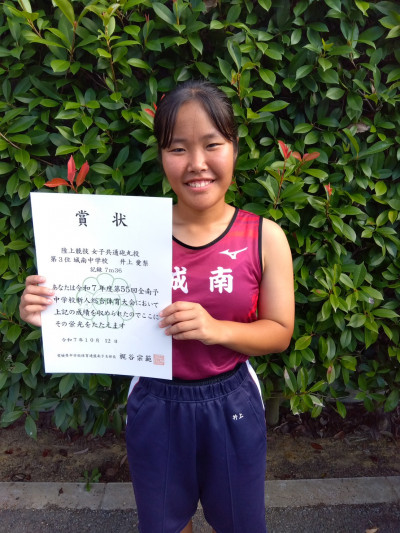 賞状
陸上競技 女子共通砲丸投
第3位 城南中学校 井上 愛梨
記録 7m36
あなたは令和7年度第55回全南予
中学校新人総合体育大会において
上記の成績を収められたのでここに
その栄光をたたえます
令和7年10月12日
梶谷宗範
MIZUNO
城南
井上